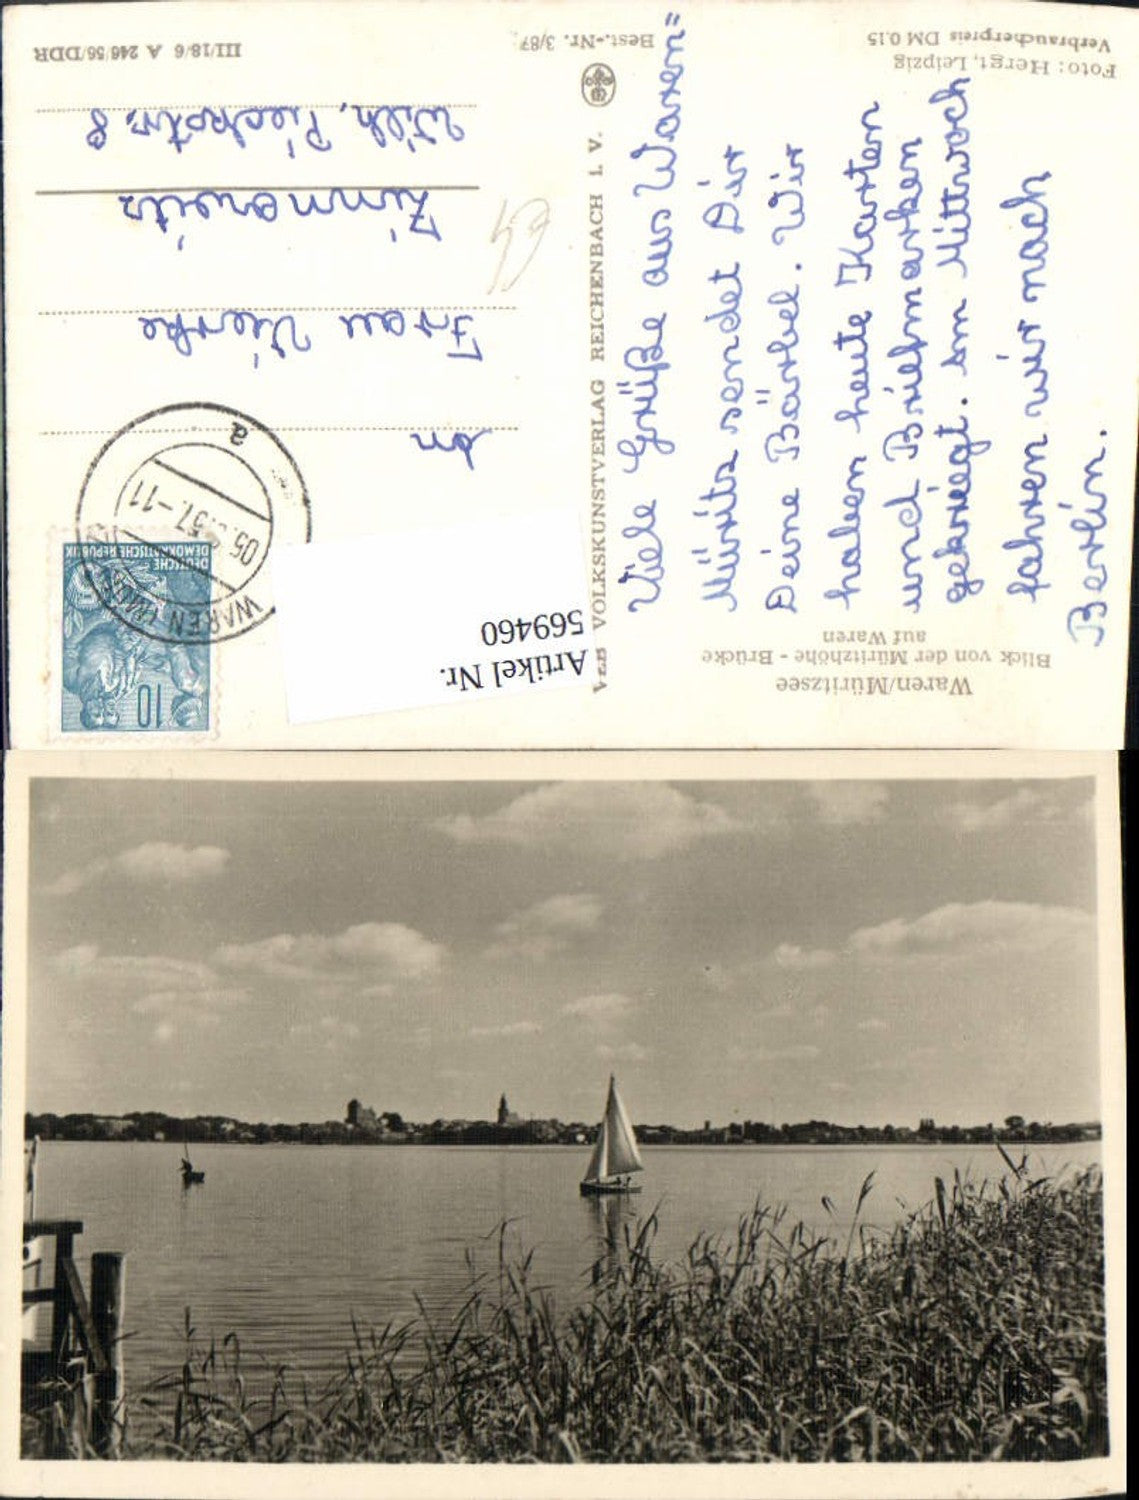 Waren/Müritzsee
Blick von der Müritzhöhe - Brücke
auf Waren
Viele Grüße aus Waren=
Müritz sendet Dir
Deine Bärbel. Wir
haben heute Karten
und Briefmarken
gekriegt. Am Mittwoch
fahren wir nach
Berlin.
Foto: Hergt, Leipzig
Verbraucherpreis DM 0.15
Best.-Nr. 3/87
III/18/6 A 246/56/DDR
VEB VOLKSKUNSTVERLAG REICHENBACH I. V.
Artikel Nr.
569460
10
DEUTSCHE
DEMOKRATISCHE REPUBLIK
WAREN
57.-11
a
An
Frau
Zinnowitz
Wilh. Pieckstr. 8